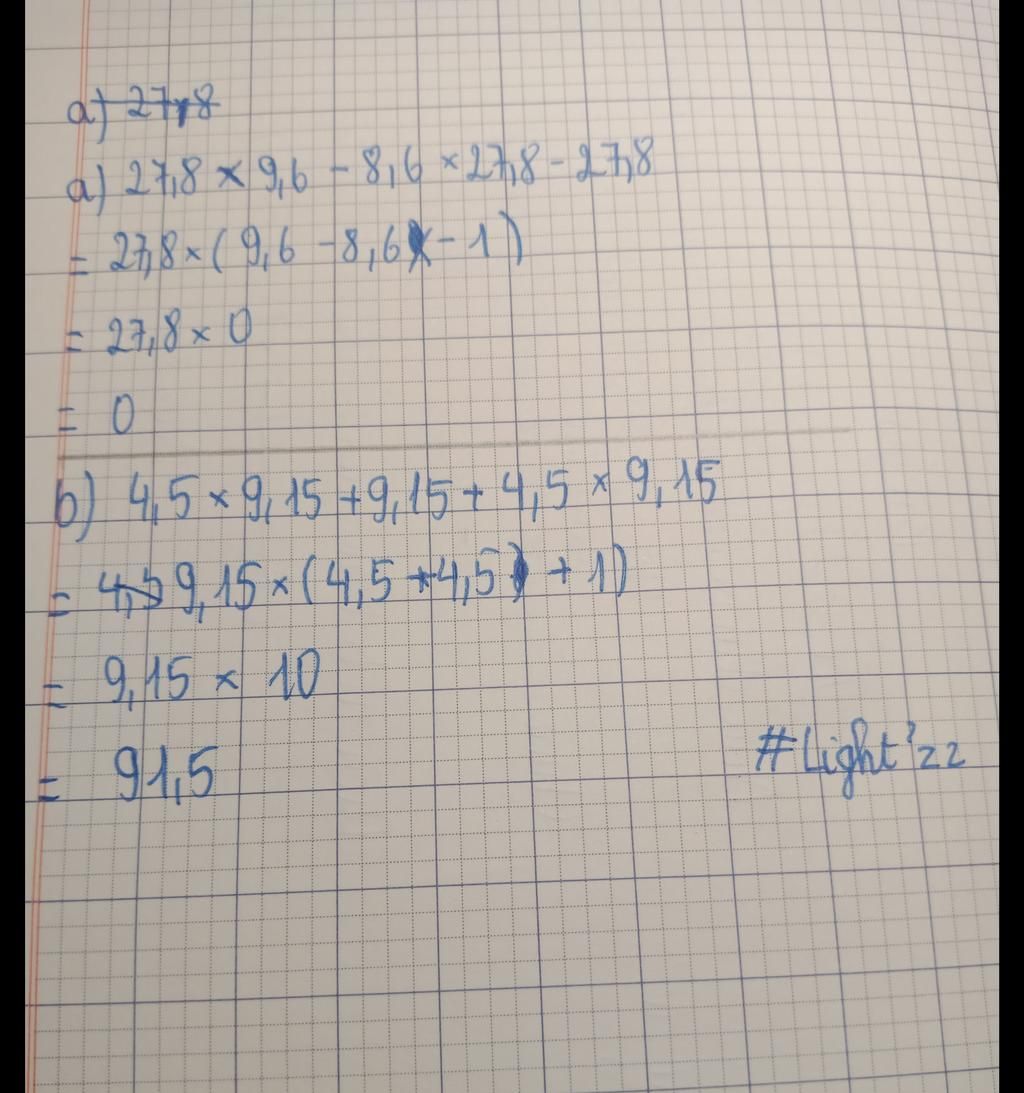 a) 27,8
a) 27,8 × 9,6 - 8,6 × 27,8 - 27,8
= 27,8 × ( 9,6 - 8,6 - 1 )
= 27,8 × 0
= 0
b) 4,5 × 9,15 + 9,15 + 4,5 × 9,15
= 4,5 9,15 × ( 4,5 + 4,5 + 1)
= 9,15 × 10
= 91,5
#Light'zz